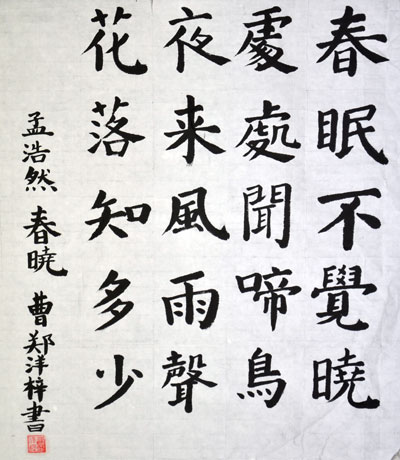 春眠不覺曉
處處聞啼鳥
夜来風雨聲
花落知多少
孟浩然 春曉 曹郑洋梓書